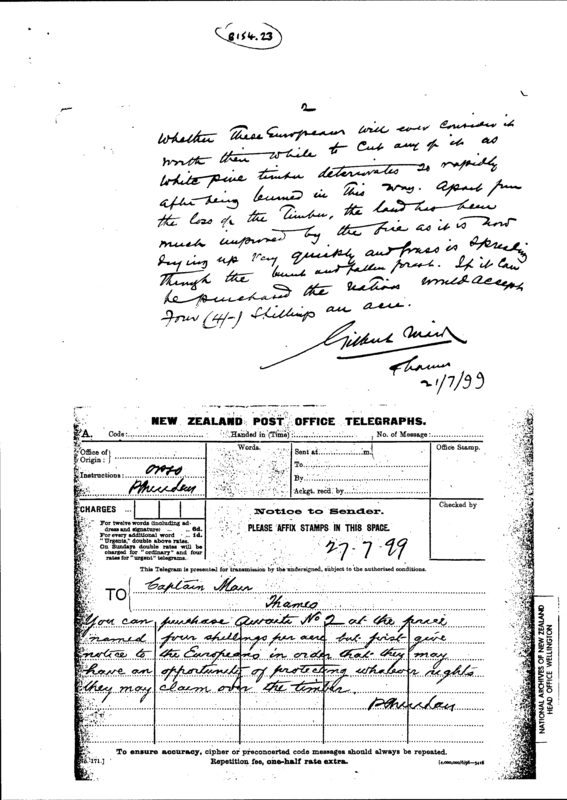 8154.23
2
Whether these Europeans will ever consider it
worth their while to cut any of it as
white pine timber deteriorates so rapidly
after being burned in this way. Apart from
the loss of the Timber, the land has been
much improved by the fire as it is now
drying up very quickly and grass is spreading
through the burnt and fallen forest. If it can
be purchased the natives would accept
Four (4/-) Shillings an acre.
Gilbert Mair
Thames
21/7/99
NEW ZEALAND POST OFFICE TELEGRAPHS.
A. Code: Handed in (Time): No. of Message:
Office of Origin:
Words.
Sent at m.
Office Stamp.
To
Instructions:
By
P Sheridan
Ackgt. recd. by
CHARGES
Notice to Sender.
Checked by
For twelve words (including address and signature) 6d.
For every additional word 1d.
"Urgents," double above rates.
On Sundays double rates will be charged for "ordinary" and four rates for "urgent" telegrams.
PLEASE AFFIX STAMPS IN THIS SPACE.
27.7.99
This Telegram is presented for transmission by the undersigned, subject to the authorised conditions.
TO
Captain Mair
Thames
You can purchase Awaiti No 2 at the price
named four shillings per acre but first give
notice to the Europeans in order that they may
have an opportunity of protecting whatever rights
they may claim over the timber.
P Sheridan
To ensure accuracy, cipher or preconcerted code messages should always be repeated.
Repetition fee, one-half rate extra.
NATIONAL ARCHIVES OF NEW ZEALAND
HEAD OFFICE WELLINGTON